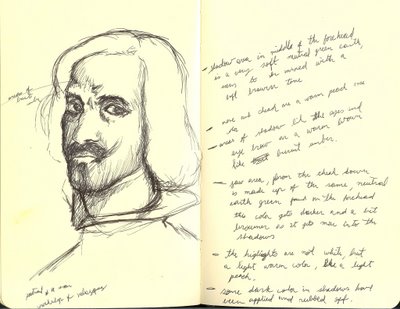 areas of
portrait of a man
workshop of velazquez
- shadow area in middle of the forehead
is a very soft neutral green earth,
to be mixed with a
soft brown tone
- nose and cheek are a warm peach
- areas of shadow like the eyes and
eye brow are a warm brown
like burnt umber.
- jaw area, from the cheek down
is made up of the same, neutral
earth green found in the forehead
this color gets darker and a bit
browner as it gets more into the
shadows
- the highlights are not white, but
a light warm color, like a light
peach.
- some dark color in shadows have
been applied and rubbed off.